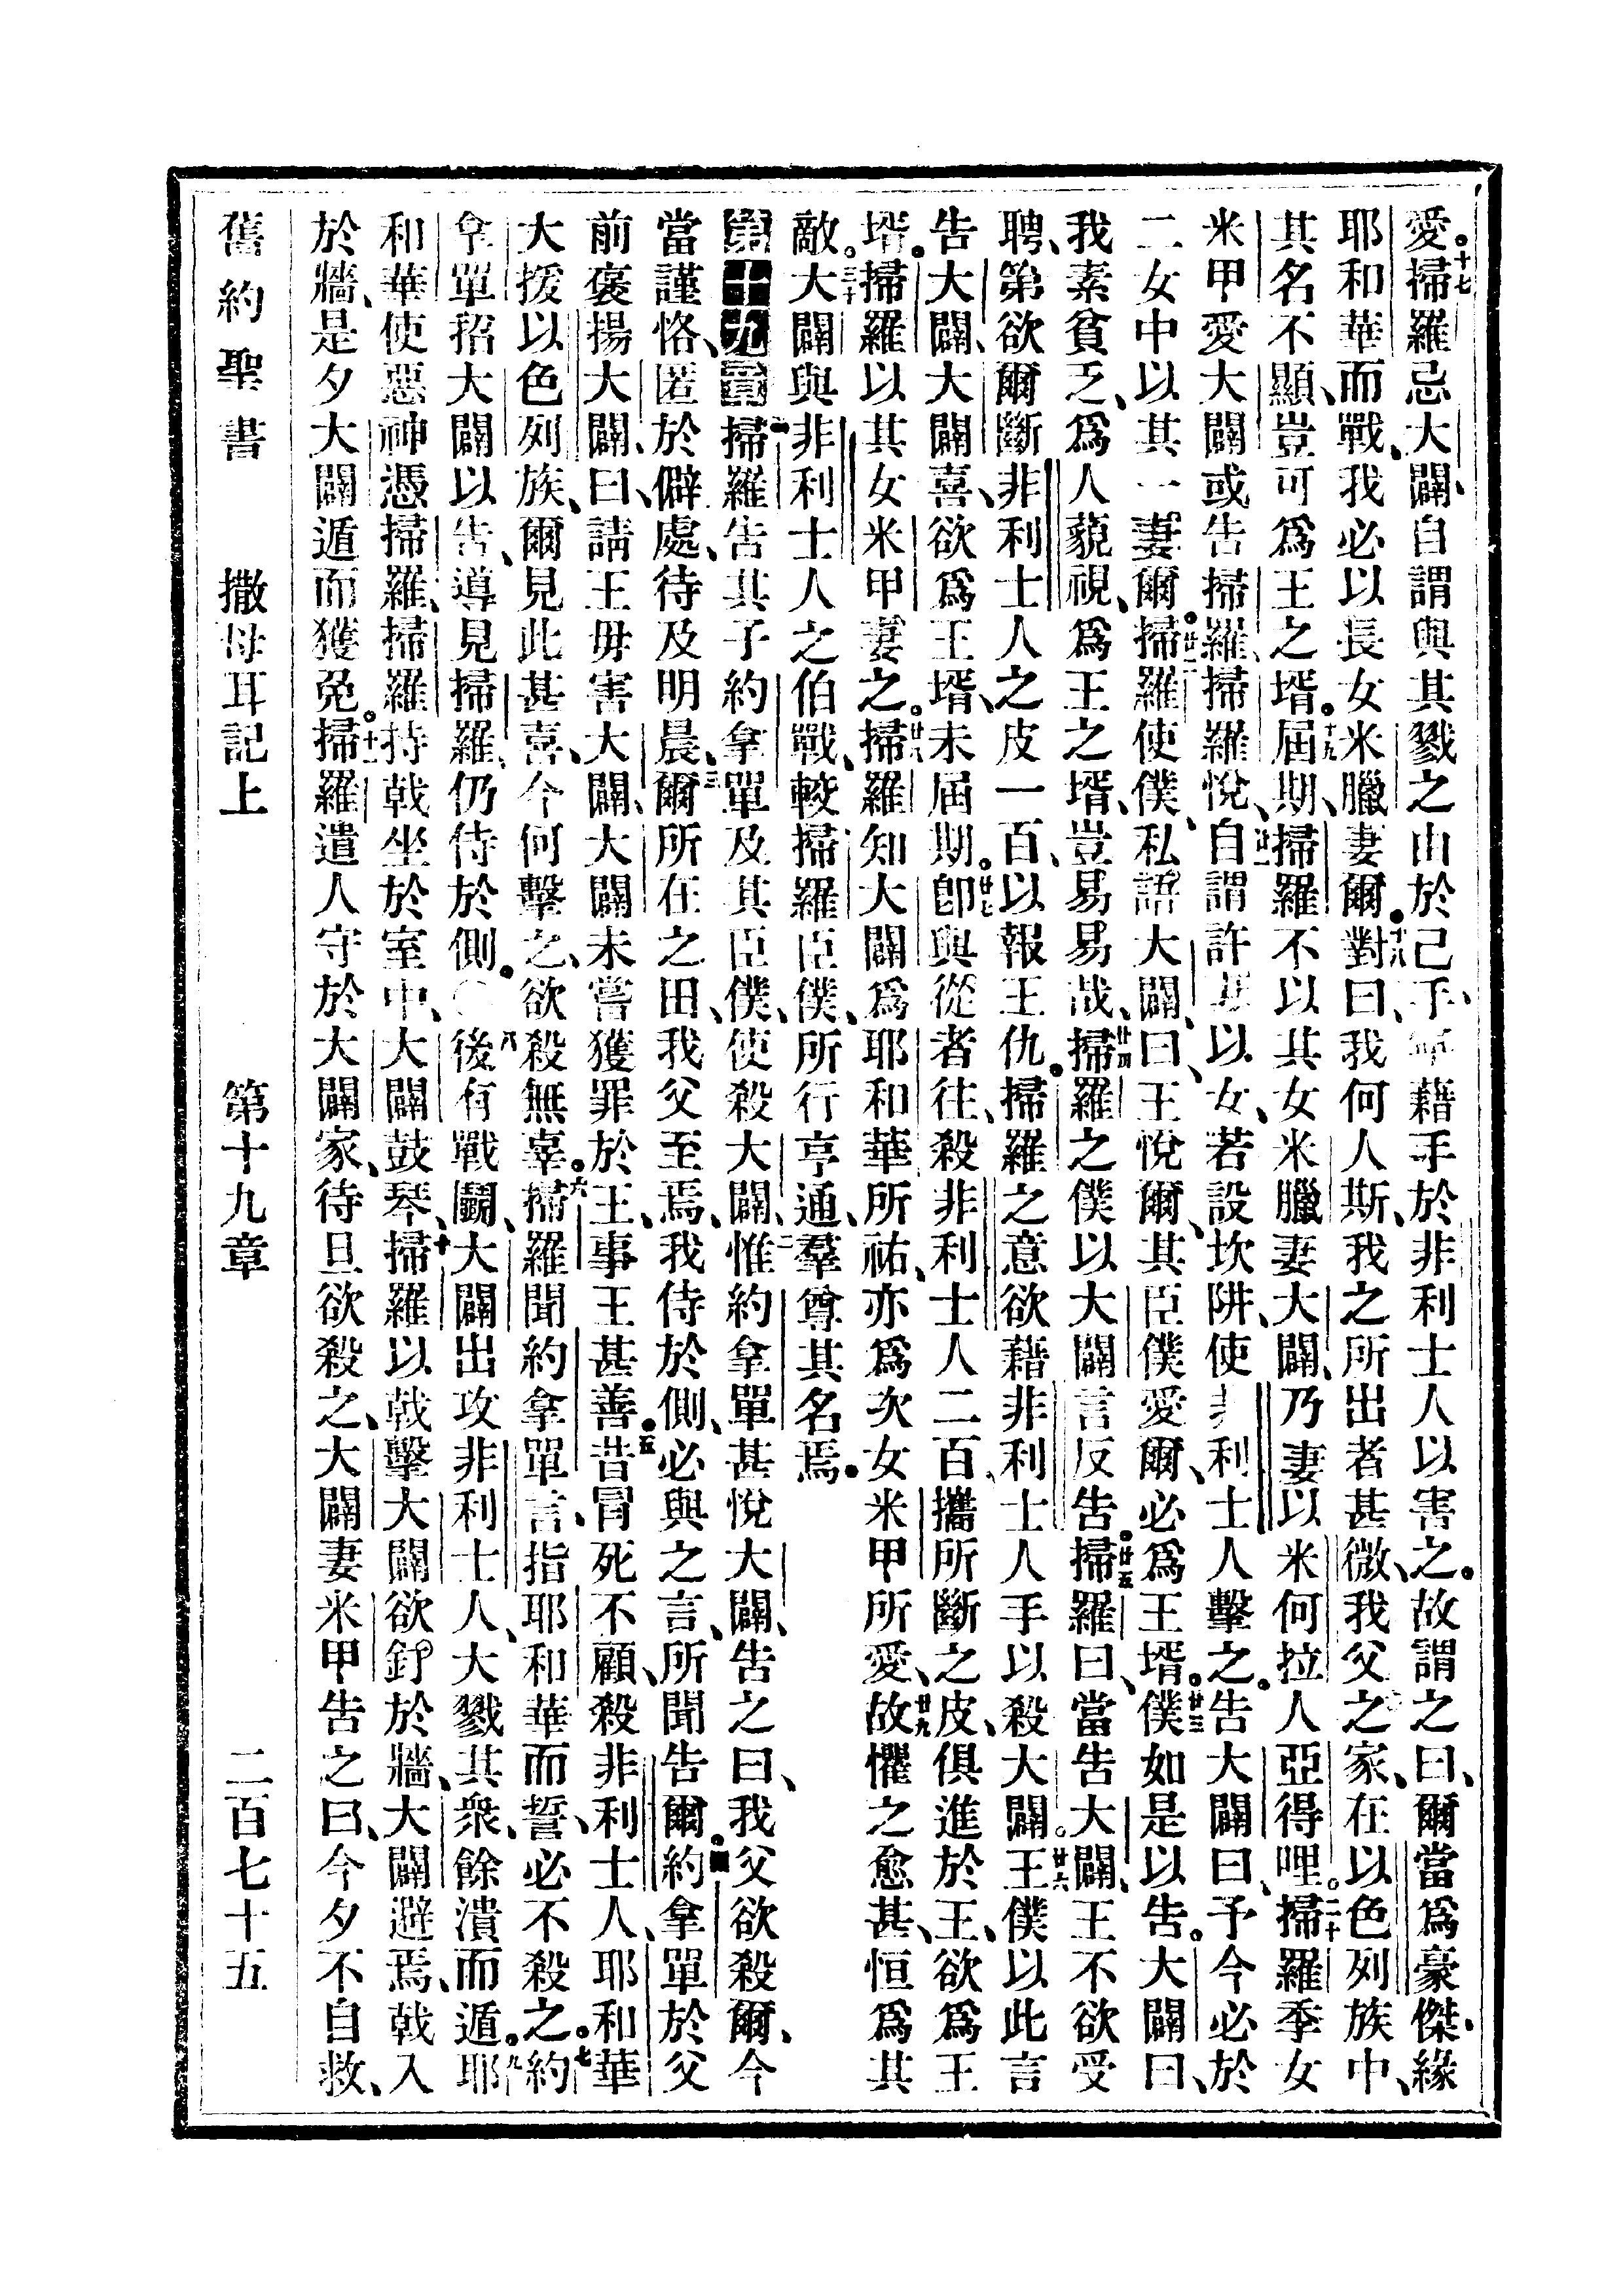 愛。十七掃羅忌大闢、自謂與其戮之由於己手、寧藉手於非利士人以害之。故謂之曰、爾當爲豪傑、緣
耶和華而戰、我必以長女米臘妻爾。十八對曰、我何人斯、我之所出者甚微、我父之家、在以色列族中、
其名不顯、豈可爲王之壻。十九屆期、掃羅不以其女米臘妻大闢、乃妻以米何拉人亞得哩。二十掃羅季女
米甲愛大闢、或告掃羅、掃羅悅、廿一自謂許妻以女、若設坎阱、使非利士人擊之。告大闢曰、予今必於
二女中以其一妻爾。廿二掃羅使僕、私語大闢、曰、王悅爾、其臣僕愛爾、必爲王壻。廿三僕如是以告。大闢曰、
我素貧乏、爲人藐視、爲王之壻、豈易易哉、廿四掃羅之僕以大闢言反告。廿五掃羅曰、當告大闢、王不欲受
聘、第欲爾斷非利士人之皮一百、以報王仇。掃羅之意欲藉非利士人手以殺大闢。廿六王僕以此言
告大闢、大闢喜、欲爲王壻、未屆期。廿七卽與從者往、殺非利士人二百、攜所斷之皮、俱進於王、欲爲王
壻。掃羅以其女米甲妻之。廿八掃羅知大闢爲耶和華所祐、亦爲次女米甲所愛、廿九故懼之愈甚、恒爲其
敵。三十大闢與非利士人之伯戰、較掃羅臣僕、所行亨通、羣尊其名焉。
第十九章一掃羅告其子約拿單及其臣僕、使殺大闢、二惟約拿單甚悅大闢、告之曰、我父欲殺爾、今
當謹恪、匿於僻處、待及明晨、三爾所在之田、我父至焉、我侍於側、必與之言、所聞告爾。四約拿單於父
前褒揚大闢、曰、請王毋害大闢、大闢未嘗獲罪於王、事王甚善。五昔冒死不顧、殺非利士人、耶和華
大援以色列族、爾見此甚喜、今何擊之、欲殺無辜。六掃羅聞約拿單言、指耶和華而誓、必不殺之。七約
拿單招大闢以告、導見掃羅、仍侍於側。〇八後有戰鬬、大闢出攻非利士人、大戮其衆、餘潰而遁。九耶
和華使惡神憑掃羅、掃羅持戟坐於室中、大闢鼓琴、十掃羅以戟擊大闢欲釘於牆、大闢避焉、戟入
於牆、是夕大闢遁而獲免。十一掃羅遣人守於大闢家、待旦欲殺之、大闢妻米甲告之曰、今夕不自救、
舊約聖書　撒母耳記上　第十九章　二百七十五